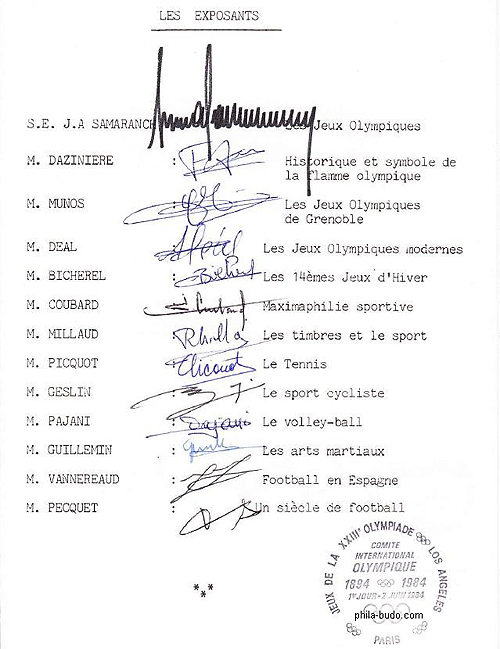 LES EXPOSANTS
S.E. J.A SAMARANCH Les Jeux Olympiques
M. DAZINIERE : Historique et symbole de
la flamme olympique
M. MUNOS : Les Jeux Olympiques
de Grenoble
M. DEAL : Les Jeux Olympiques modernes
M. BICHEREL : Les 14èmes Jeux d'Hiver
M. COUBARD : Maximaphilie sportive
M. MILLAUD : Les timbres et le sport
M. PICQUOT : Le Tennis
M. GESLIN : Le sport cycliste
M. PAJANI : Le volley-ball
M. GUILLEMIN : Les arts martiaux
M. VANNEREAUD : Football en Espagne
M. PECQUET : Un siècle de football
***
JEUX DE LA XXIIIe OLYMPIADE LOS ANGELES
COMITE
INTERNATIONAL
OLYMPIQUE
1894 1984
1er JOUR-2 JUIN 1984
phila-budo.com
PARIS